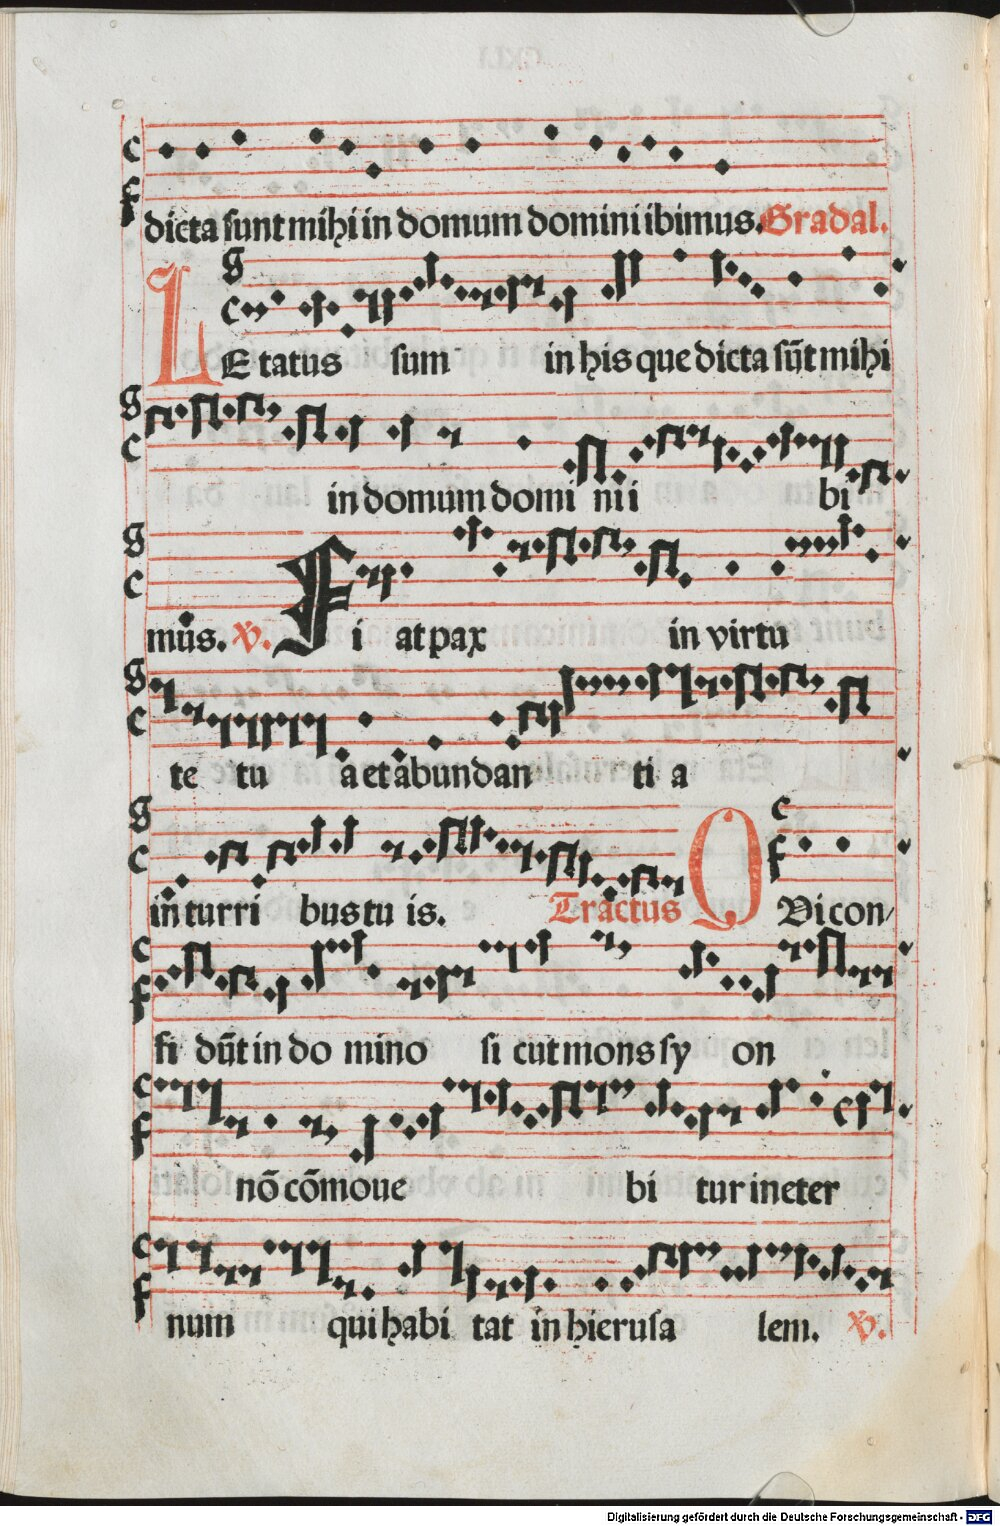 dicta sunt mihi in domum domini ibimus. Gradal.
LE tatus sum in his que dicta sūt mihi
in domum domi ni i bi
mus. V. Fi at pax in virtu
te tu a et abundan ti a
in turri bus tu is. Tractus QVi con/
fi dūt in do mino si cut mons sy on
nō cōmoue bi tur in eter
num qui habi tat in hierusa lem. V.
Digitalisierung gefördert durch die Deutsche Forschungsgemeinschaft - DFG